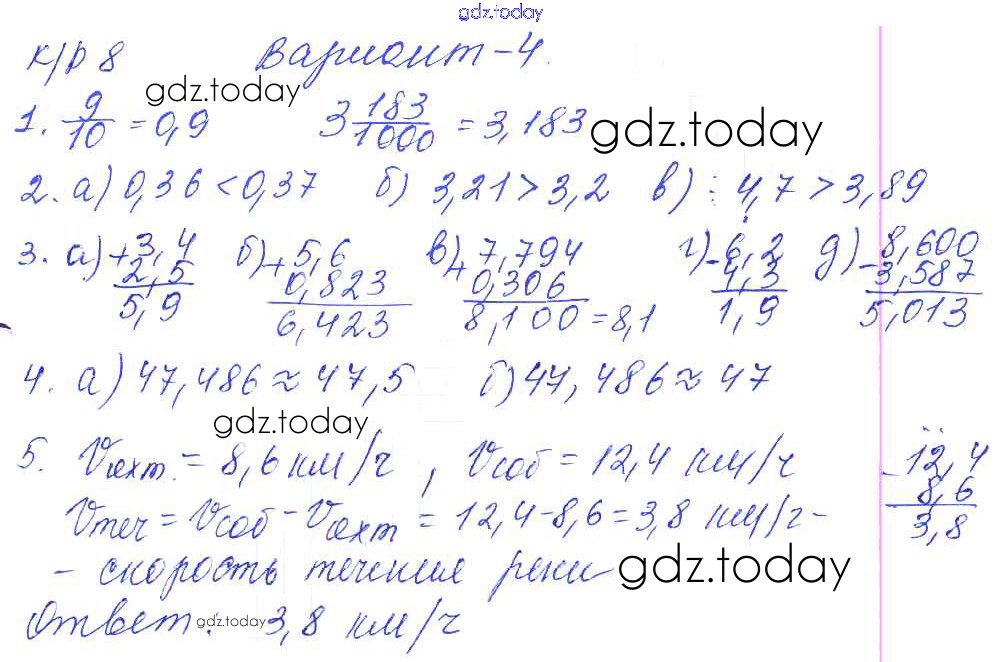 gdz.today
К/р 8 Вариант-4.
gdz.today
1. 9/10 = 0,9 3 183/1000 = 3,183 gdz.today
2. а) 0,36 < 0,37 б) 3,21 > 3,2 в) 4,7 > 3,89
3. а) + 3,4 б) + 5,6 в) + 7,794 г) - 6,2 д) - 8,600
2,5 0,823 0,306 4,3 3,587
5,9 6,423 8,100 = 8,1 1,9 5,013
4. а) 47,486 ≈ 47,5 б) 47,486 ≈ 47
gdz.today
5. Vяхт. = 8,6 км/ч, Vсоб = 12,4 км/ч - 12,4
8,6
Vтеч = Vсоб - Vяхт = 12,4-8,6 = 3,8 км/ч - 3,8
- скорость течения реки gdz.today
Ответ: gdz.today 3,8 км/ч